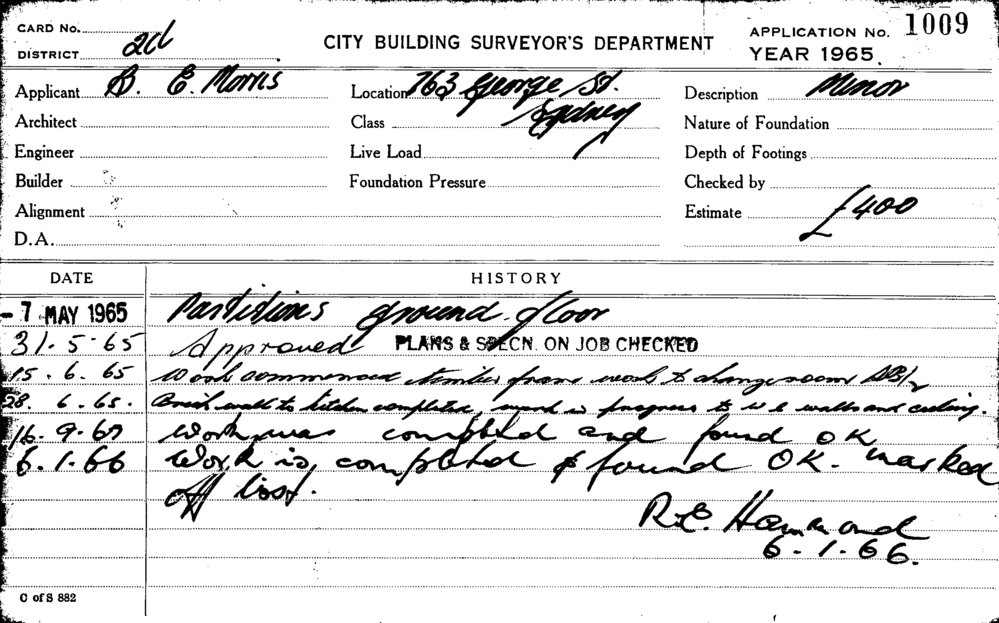 CARD No.
DISTRICT
CITY BUILDING SURVEYOR'S DEPARTMENT
APPLICATION No. 1009
YEAR 1965.
Applicant B. E. Morris
Location 763 George St.
Sydney
Description Minor
Architect
Class
Nature of Foundation
Engineer
Live Load
Depth of Footings
Builder
Foundation Pressure
Checked by
Alignment
Estimate £400
D.A.
DATE HISTORY
- 7 MAY 1965 Partitions ground floor
31.5.65 Approved PLANS & SPECN. ON JOB CHECKED
15.6.65 Work commenced timber frame work to change room
28.6.65. Brick wall to kitchen completed, work in progress to walls and ceiling.
16.9.65 Work was completed and found OK
6.1.66 Work is completed & found OK. marked
off list.
R.E. Hammond
6.1.66.
C of S 882